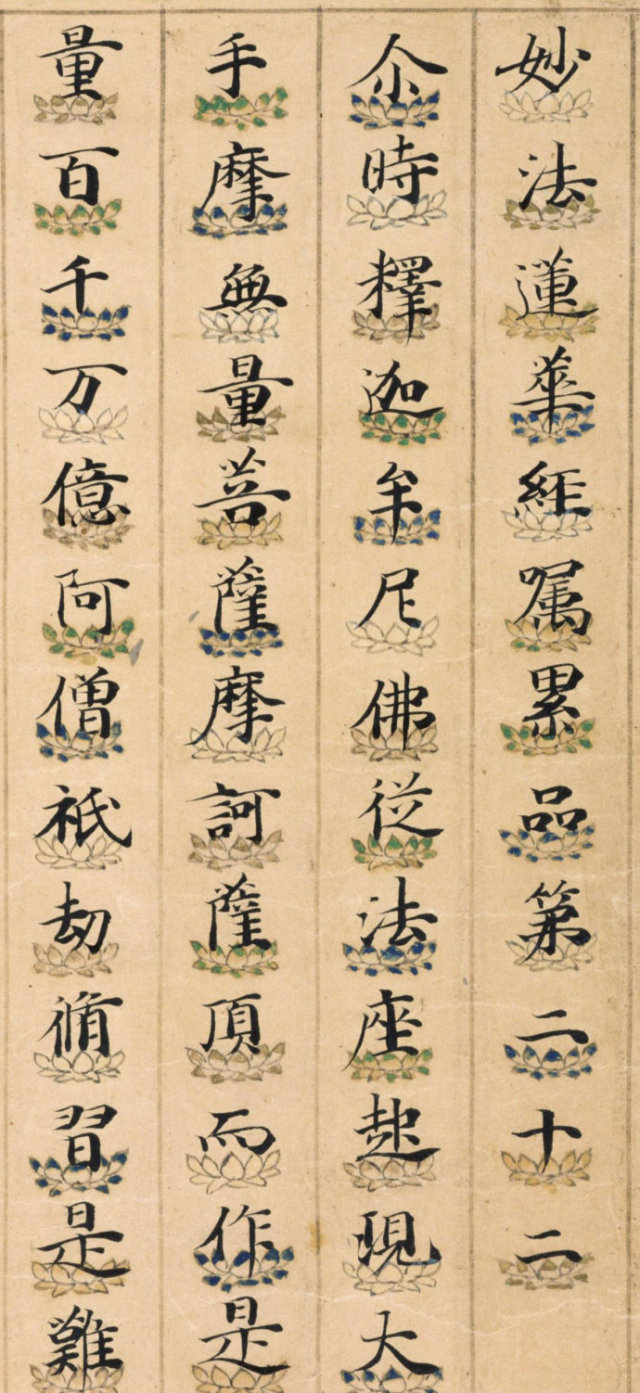 妙法蓮華経嘱累品第二十二
尒時釋迦牟尼佛従法座起現大
手摩無量菩薩摩訶薩頂而作是
量百千万億阿僧祇劫脩習是難